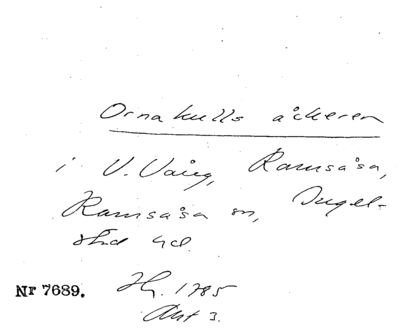 Ornakulls åckeren
i V. Vång, Ramsåsa,
Ramsåsa sn, Ingel-
stad hd.
Nr 7689. Hy. 1785
Akt 3.